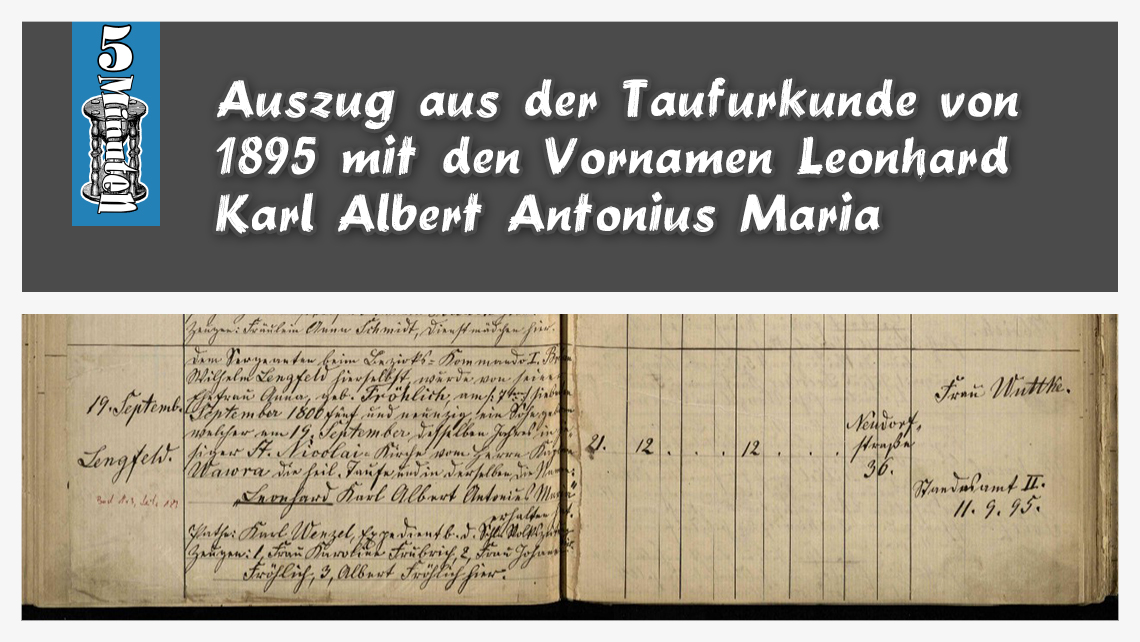 5 Minuten
Auszug aus der Taufurkunde von
1895 mit den Vornamen Leonhard
Karl Albert Antonius Maria
Zeugen: Fräulein Anna Schmidt, Dienstmädchen hier.
Dem Sergeanten beim Bezirks-Kommando I. Bres
Wilhelm Lengfeld hierselbst, wurde von seiner
Ehefrau Anna, geb. Fröhlich, am
19. Septemb.
September 1800 fünf und neunzig ein Sohn gebo
welcher am 19. September desselben Jahres in
Lengfeld.
siger St. Nicolai-Kirche vom Herrn
Wawra die heil. Taufe und in derselben die Namen:
Leonhard Karl Albert Antonius Maria
erhalten hat.
Pathe: Karl Wenzel, Expedient b. d.
Zeugen: 1, Frau Karoline Frübrich, 2, Frau Johan
Fröhlich, 3, Albert Fröhlich hier.
21. 12 . . . 12 . . .
Neudorf-
straße
36.
Frau Wuttke.
Standesamt II.
11. 9. 95.